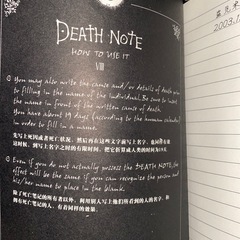 DEATH NOTE
HOW TO USE IT
VIII
You may also write the cause and/or details of death prior
to filling in the name of the individual. Be sure to insert
the name in front of the written cause of death.
You have about 19 days (according to the human calendar)
in order to fill in a name.
先写上死因或者死亡状况，然后再在这些文字前写上名字，
这时候，到写上名字之时的有限时间，把它折算成人类的时间约为
Even if you do not actually possess the DEATH NOTE, the
effect will be the same if you can recognize the person and
his/her name to place in the blank.
除了死亡笔记的所有者以外，利用别人写上他们所看到的人的名字，
拥有死亡笔记的人，有着同样的效果。
2003.